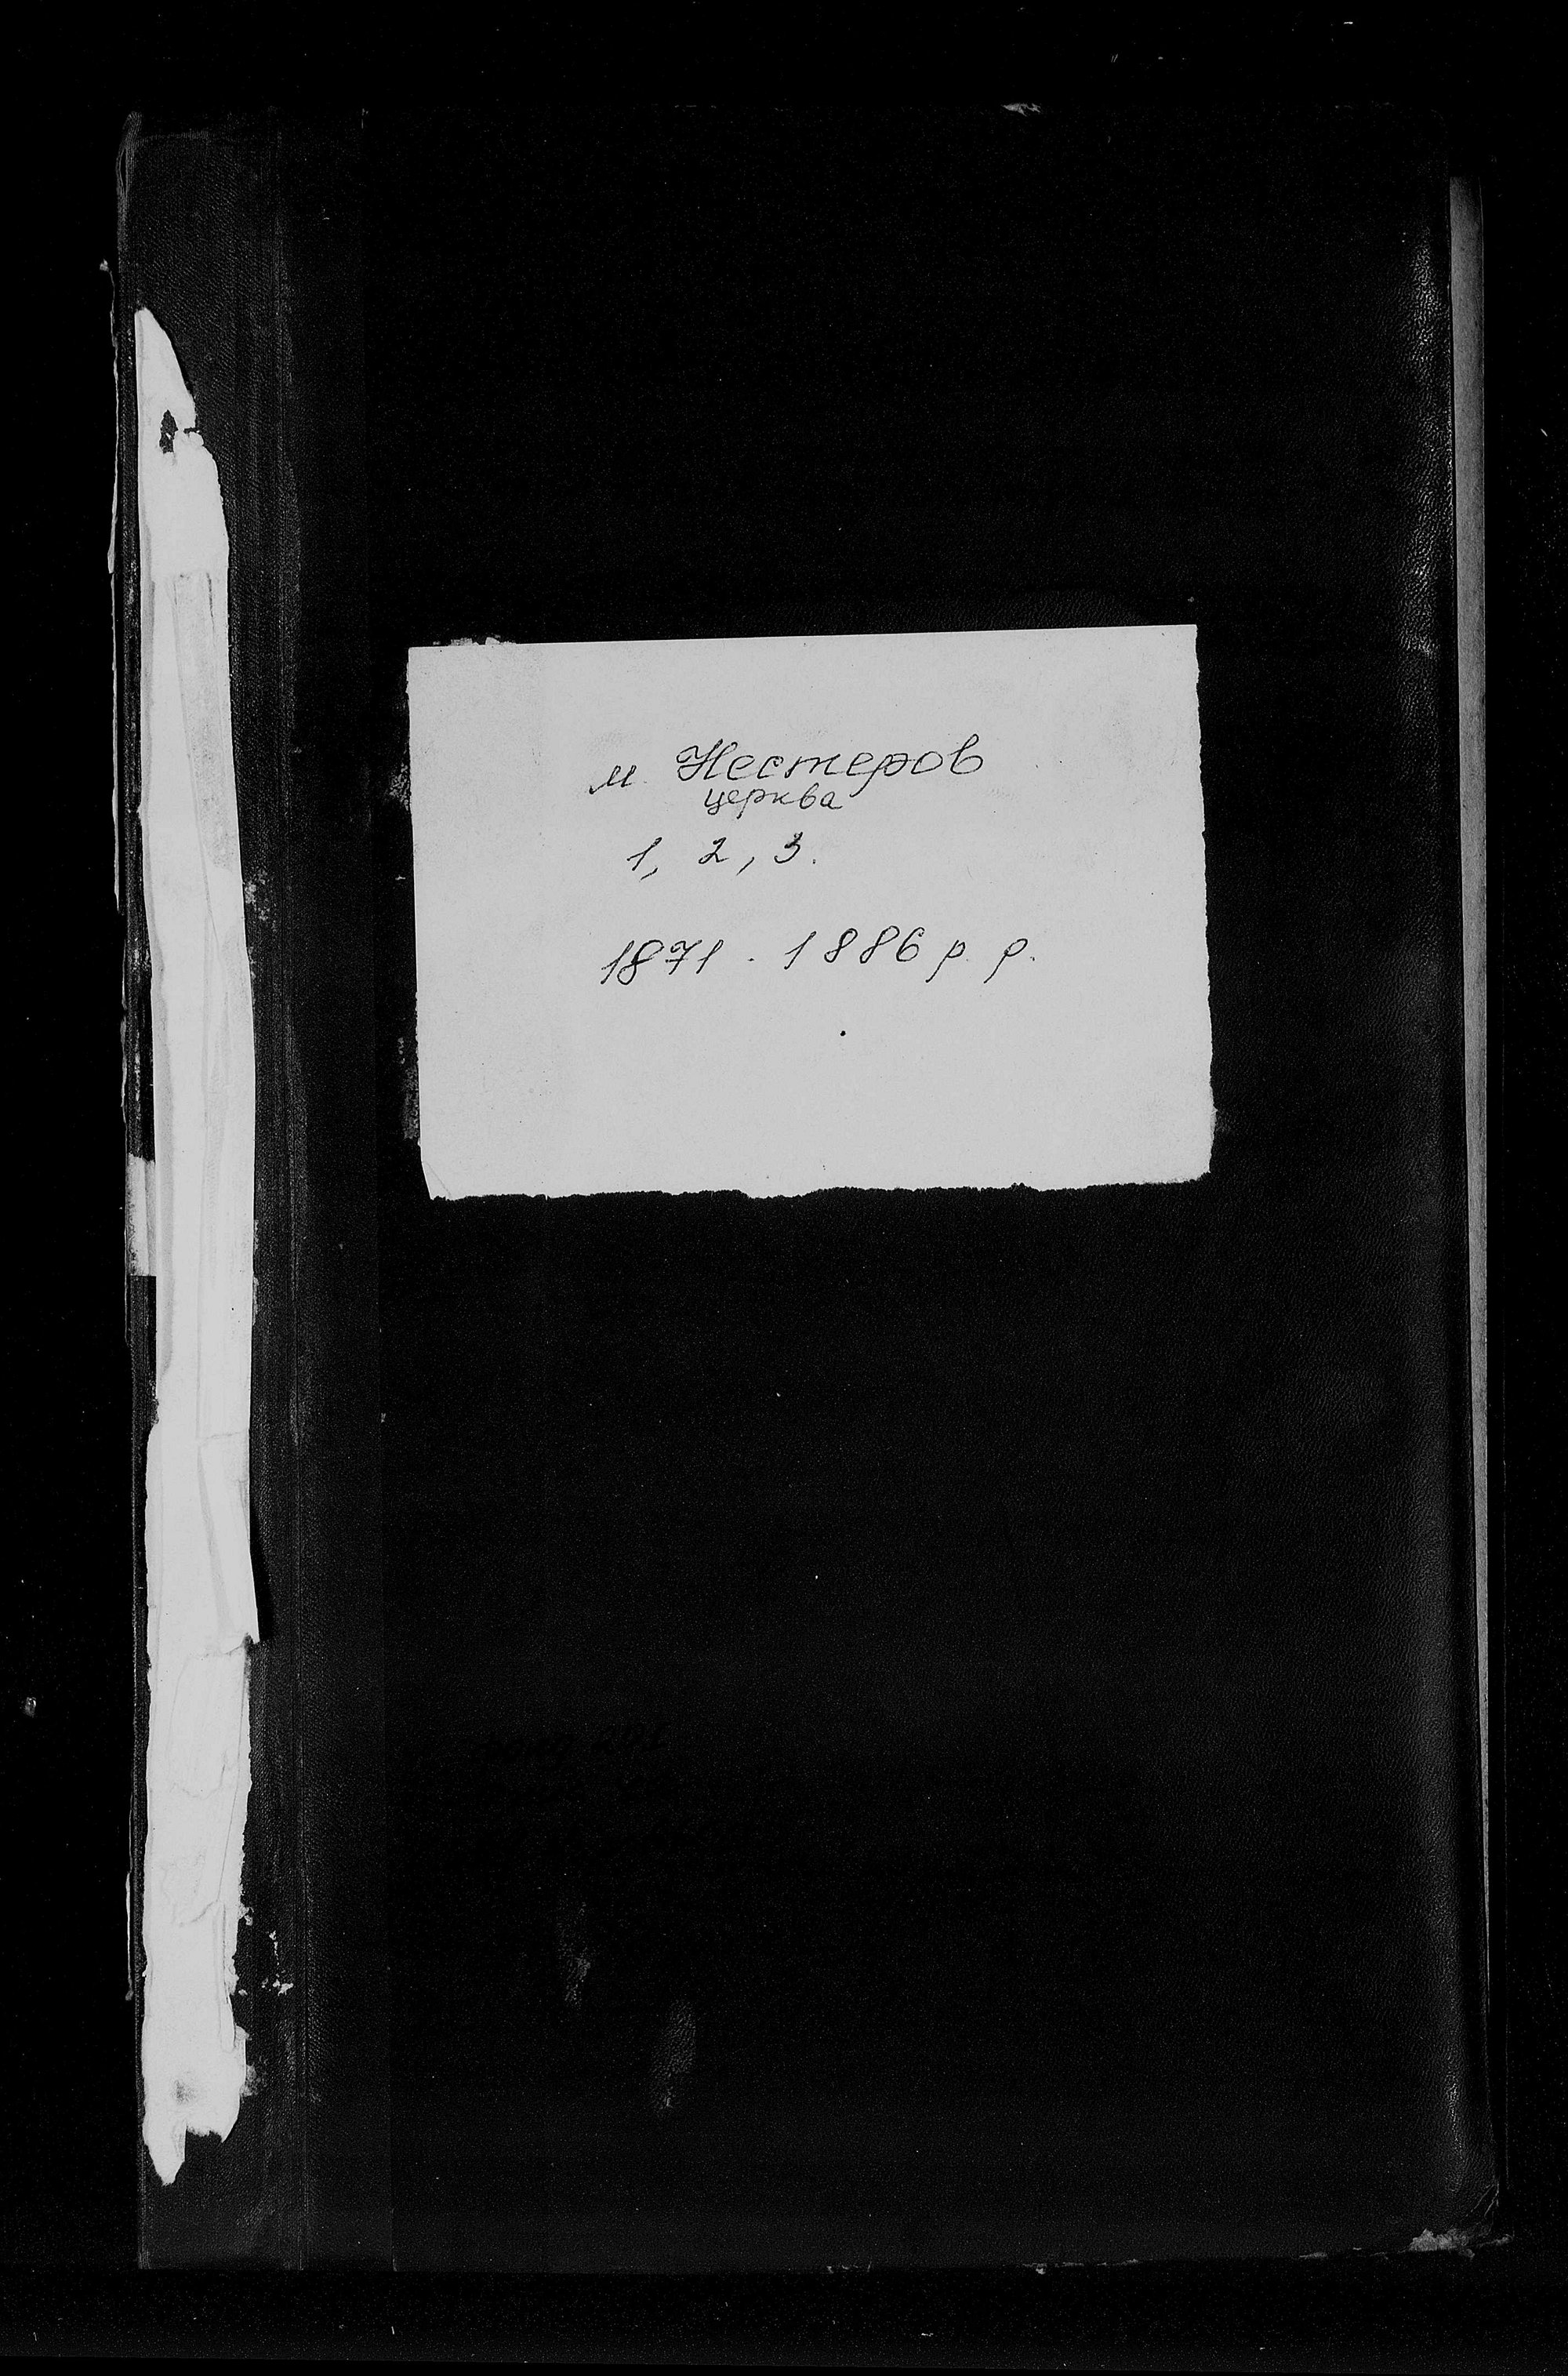 м. Нестеров
церква
1, 2, 3.
1871 - 1886 р. р.